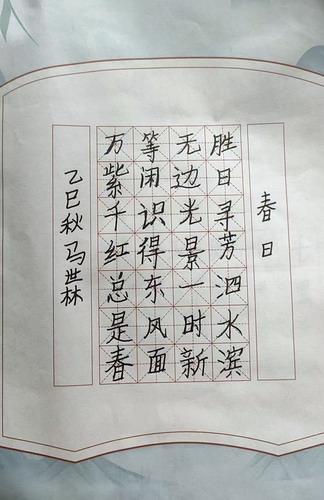 春日
胜日寻芳泗水滨
无边光景一时新
等闲识得东风面
万紫千红总是春
乙巳秋马世林